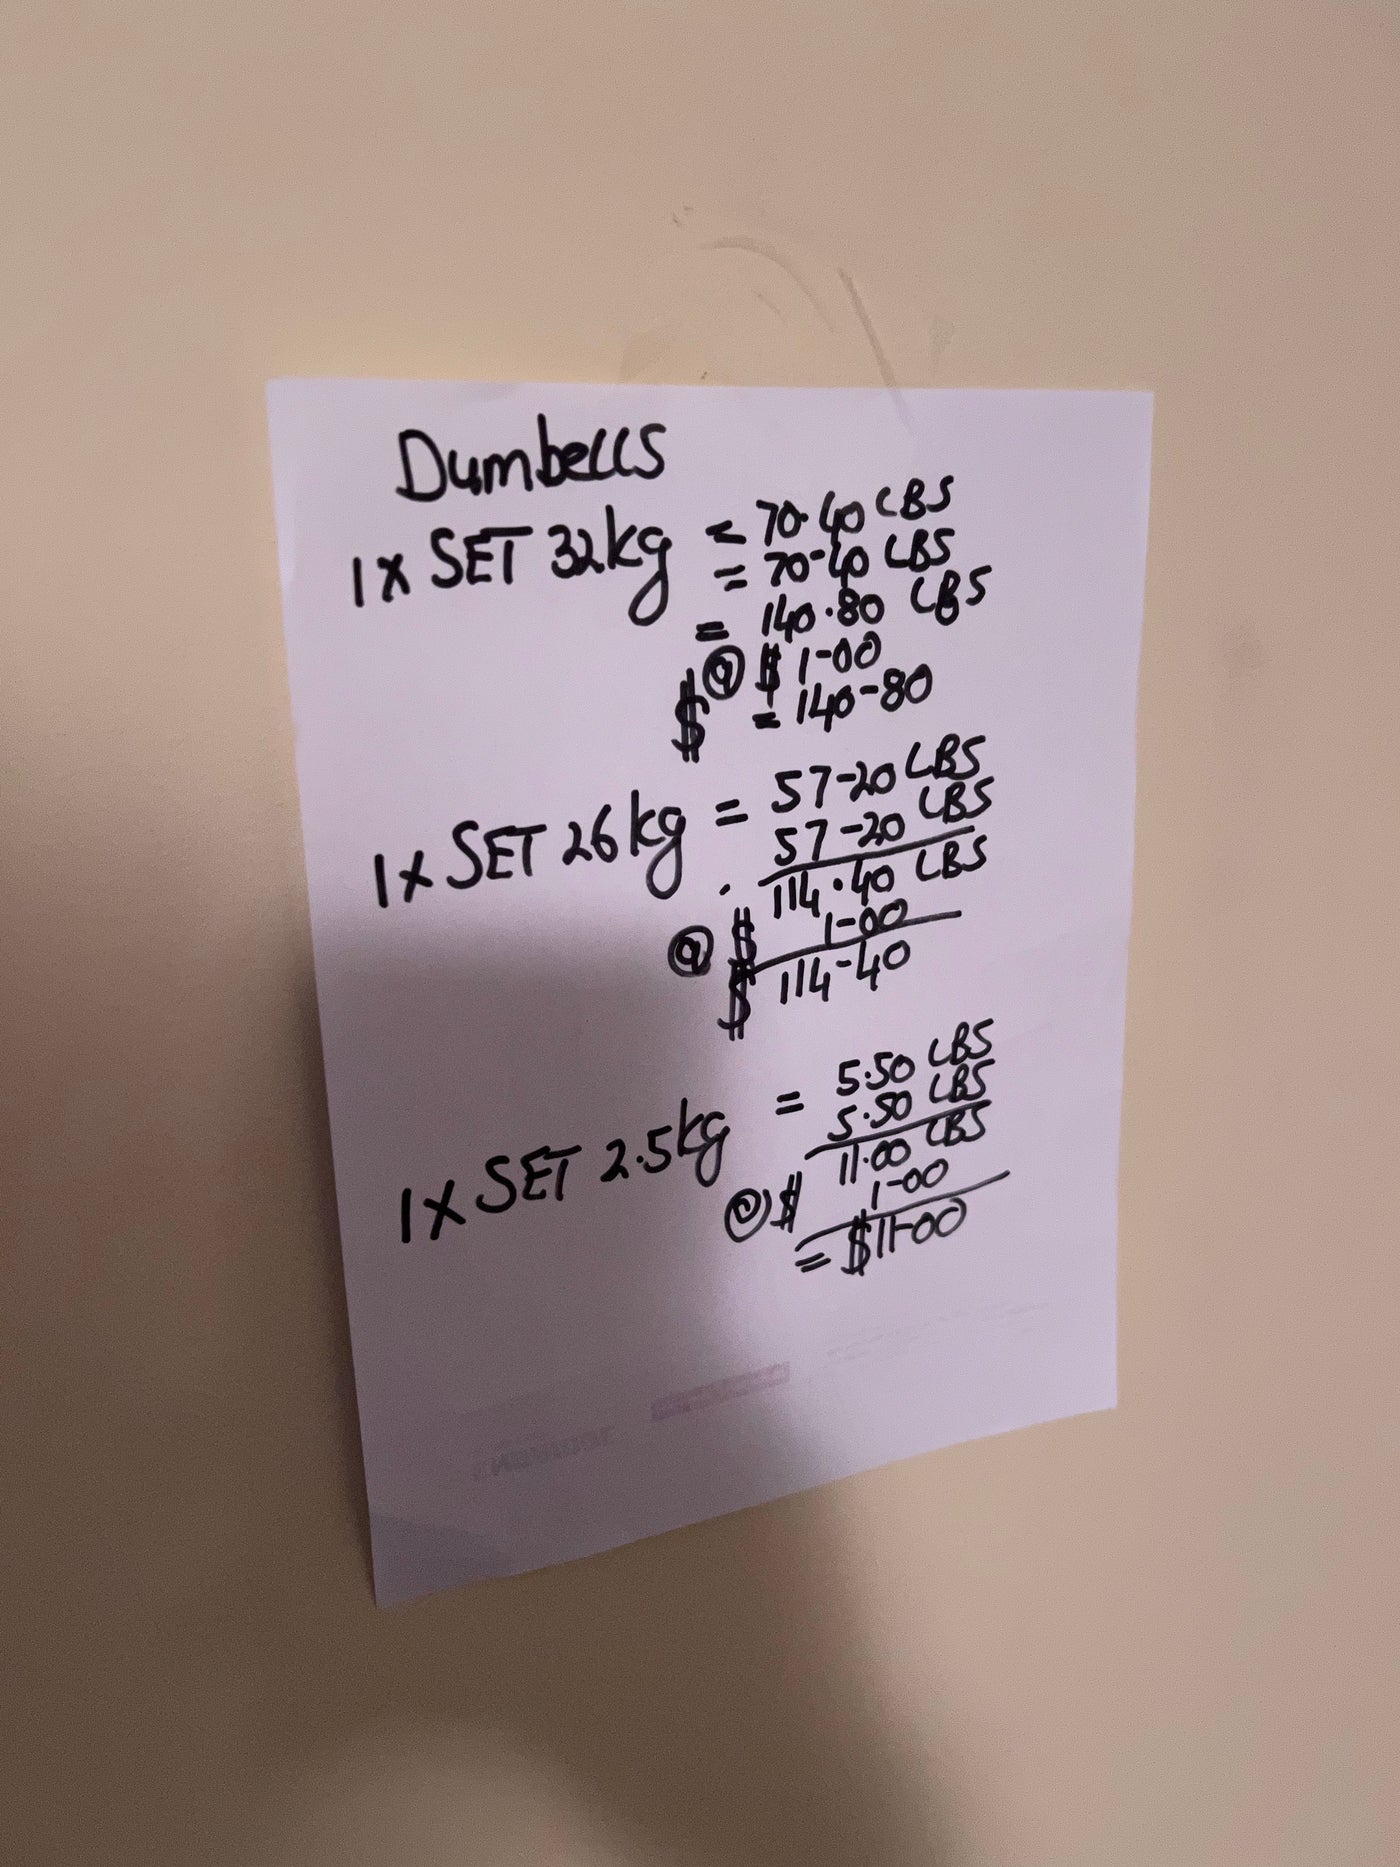 Dumbells
1 x SET 32kg = 70.40 LBS
= 70-40 LBS
= 140.80 LBS
@ $ 1-00
$ = 140-80
1 x SET 26kg = 57-20 LBS
57-20 LBS
114.40 LBS
@ $ 1-00
$ 114-40
1 x SET 2.5kg = 5.50 LBS
5.50 LBS
11.00 LBS
@ $ 1-00
= $11-00